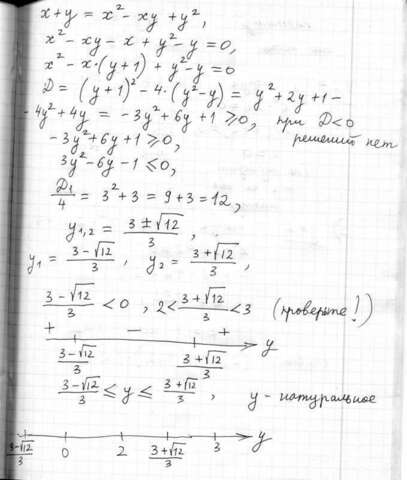 x+y = x² - xy + y²,
x² - xy - x + y² - y = 0,
x² - x·(y+1) + y² - y = 0
D = (y+1)² - 4·(y² - y) = y² + 2y + 1 -
- 4y² + 4y = -3y² + 6y + 1 ≥ 0, при D<0
решений нет
-3y² + 6y + 1 ≥ 0,
3y² - 6y - 1 ≤ 0,
D₁/4 = 3² + 3 = 9 + 3 = 12,
y₁,₂ = (3 ± √12)/3,
y₁ = (3 - √12)/3, y₂ = (3 + √12)/3,
(3 - √12)/3 < 0, 2 < (3 + √12)/3 < 3 (проверьте!)
+ - +
(3 - √12)/3 (3 + √12)/3 y
(3 - √12)/3 ≤ y ≤ (3 + √12)/3, y - натуральное
(3 - √12)/3 0 2 (3 + √12)/3 3 y